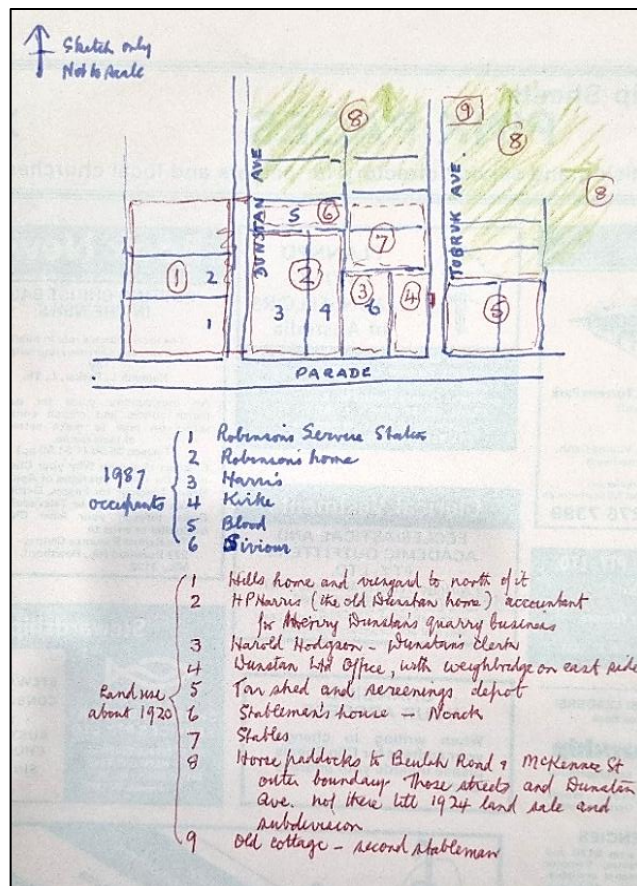 Sketch only
Not to scale
8
9
8
8
DUNSTAN AVE
TOBRUK AVE.
5 6
7
1 2
2
3 4
3
6
4
5
1
PARADE
1987
occupants
1 Robinson's Service Station
2 Robinson's home
3 Harris
4 Kirke
5 Blood
6 Siviour
Land use
about 1920
1 Hills home and vineyard to north of it
2 HP Harris (the old Dunstan home) accountant
for Henry Dunstan's quarry business
3 Harold Hodgson - Dunstan's clerk
4 Dunstan Ltd Office, with weighbridge on east side
5 Tar shed and screenings depot
6 Stableman's house - Noack
7 Stables
8 Horse paddocks to Beulah Road & McKenzie St
outer boundary. Those streets and Dunstan
Ave. not there till 1924 land sale and
subdivision
9 Old cottage - second stableman